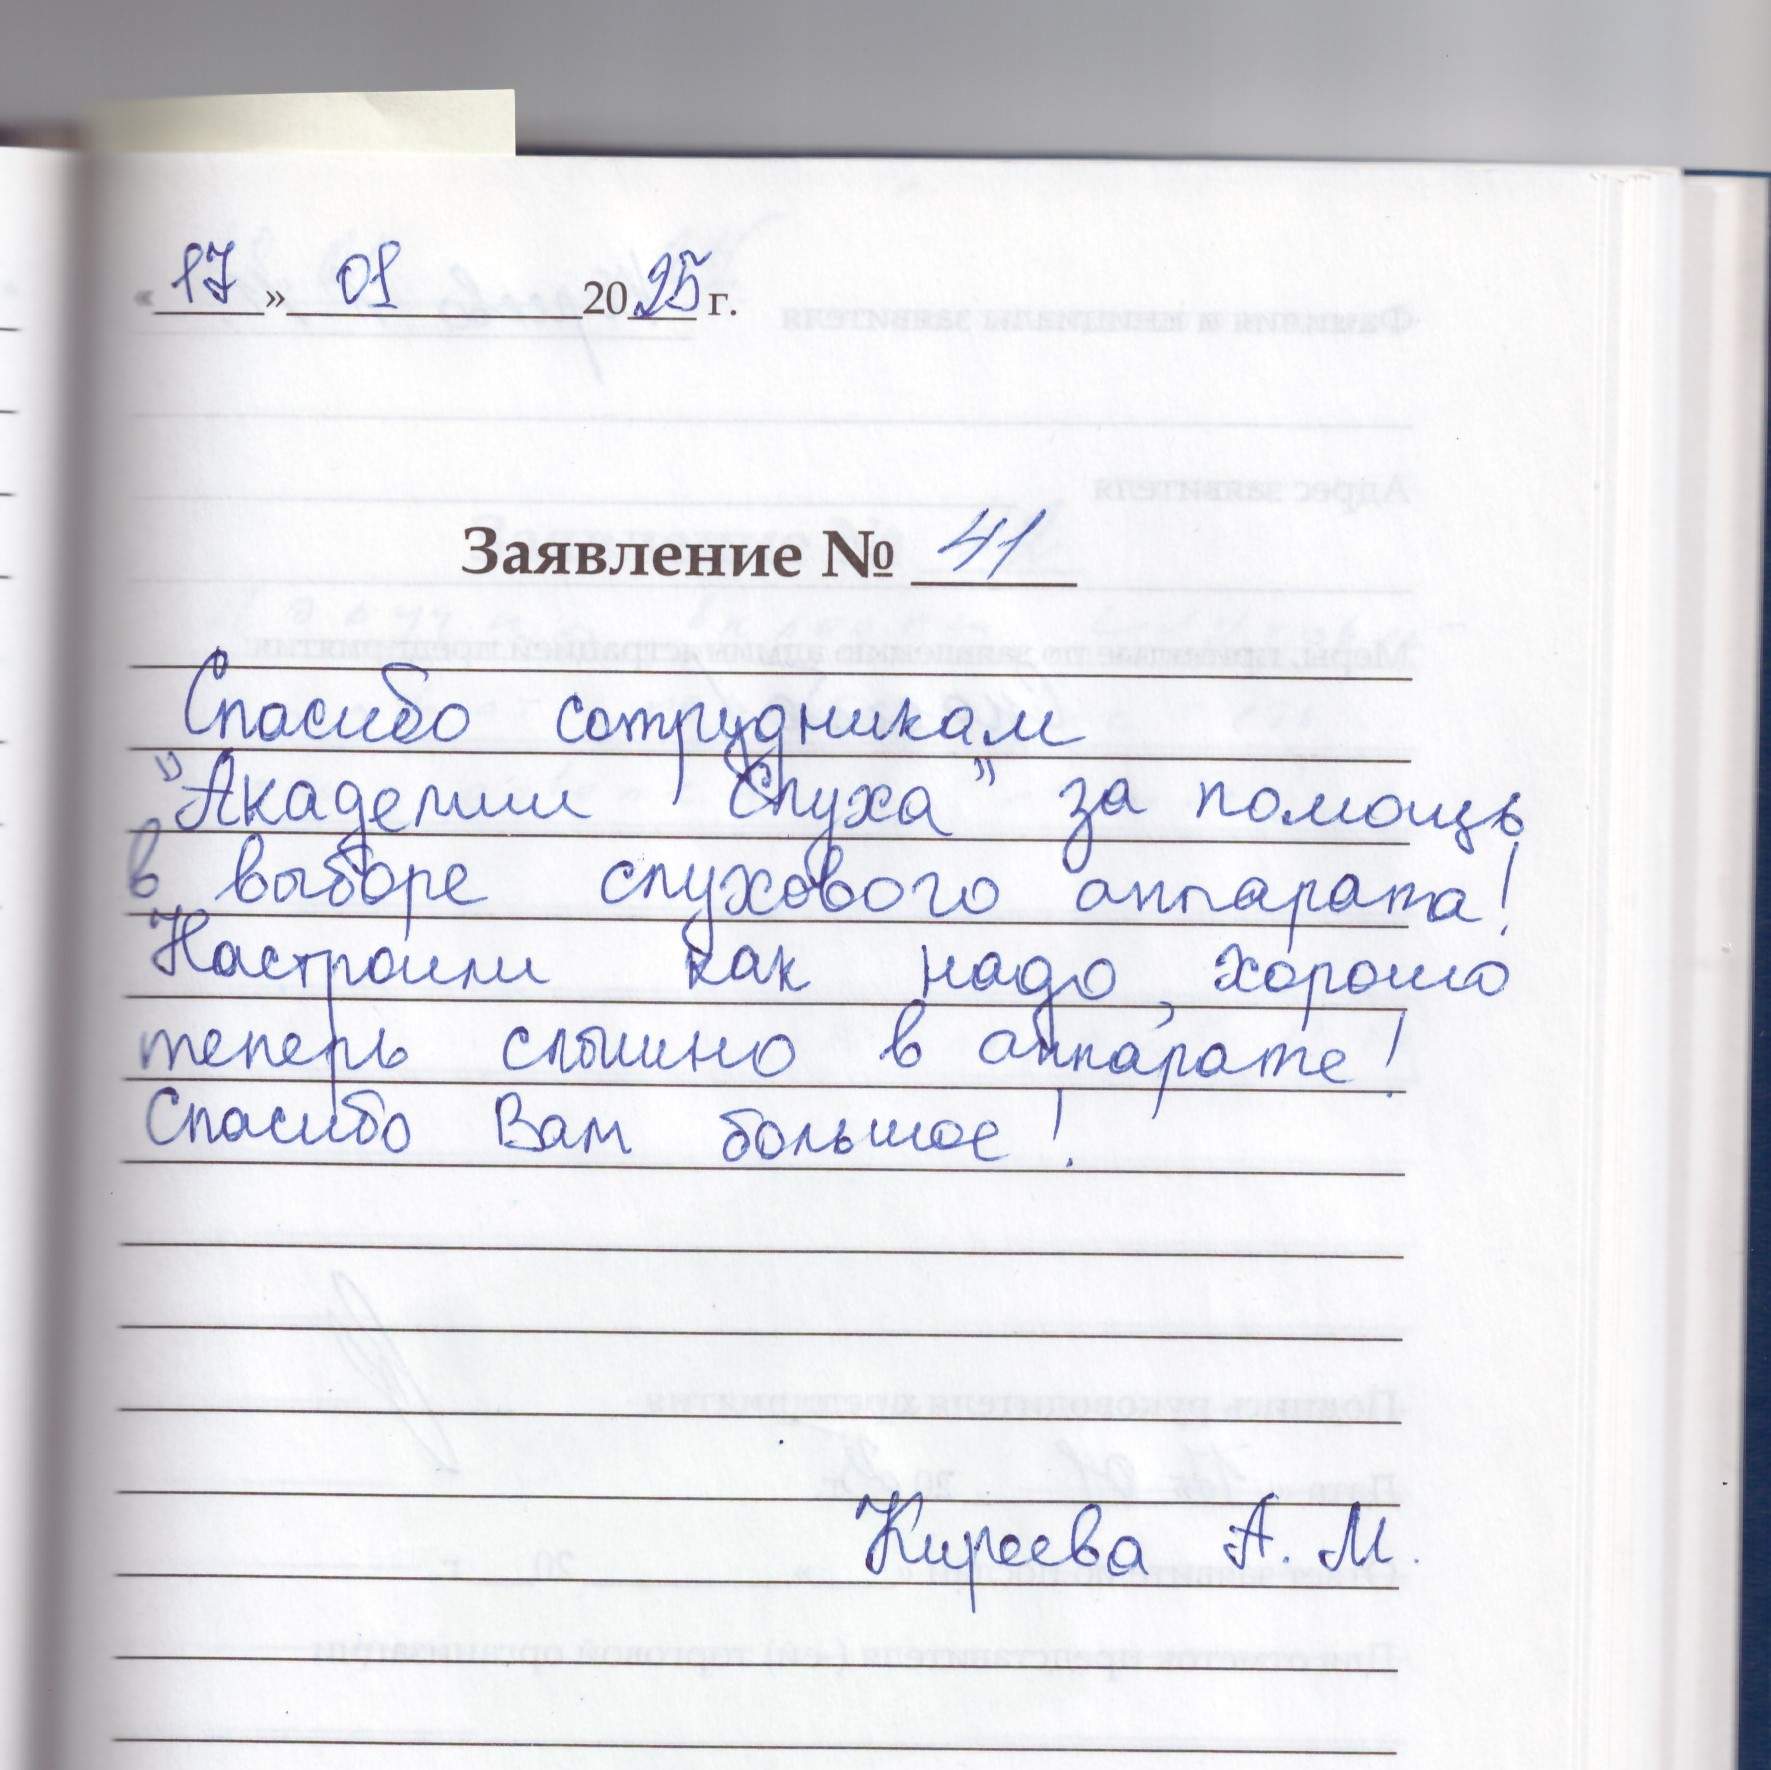 «17» 01 2025 г.
Заявление № 41
Спасибо сотрудникам
"Академии Слуха" за помощь
в выборе слухового аппарата!
Настроили как надо, хорошо
теперь слышно в аппарате!
Спасибо Вам большое!
Киреева А. М.